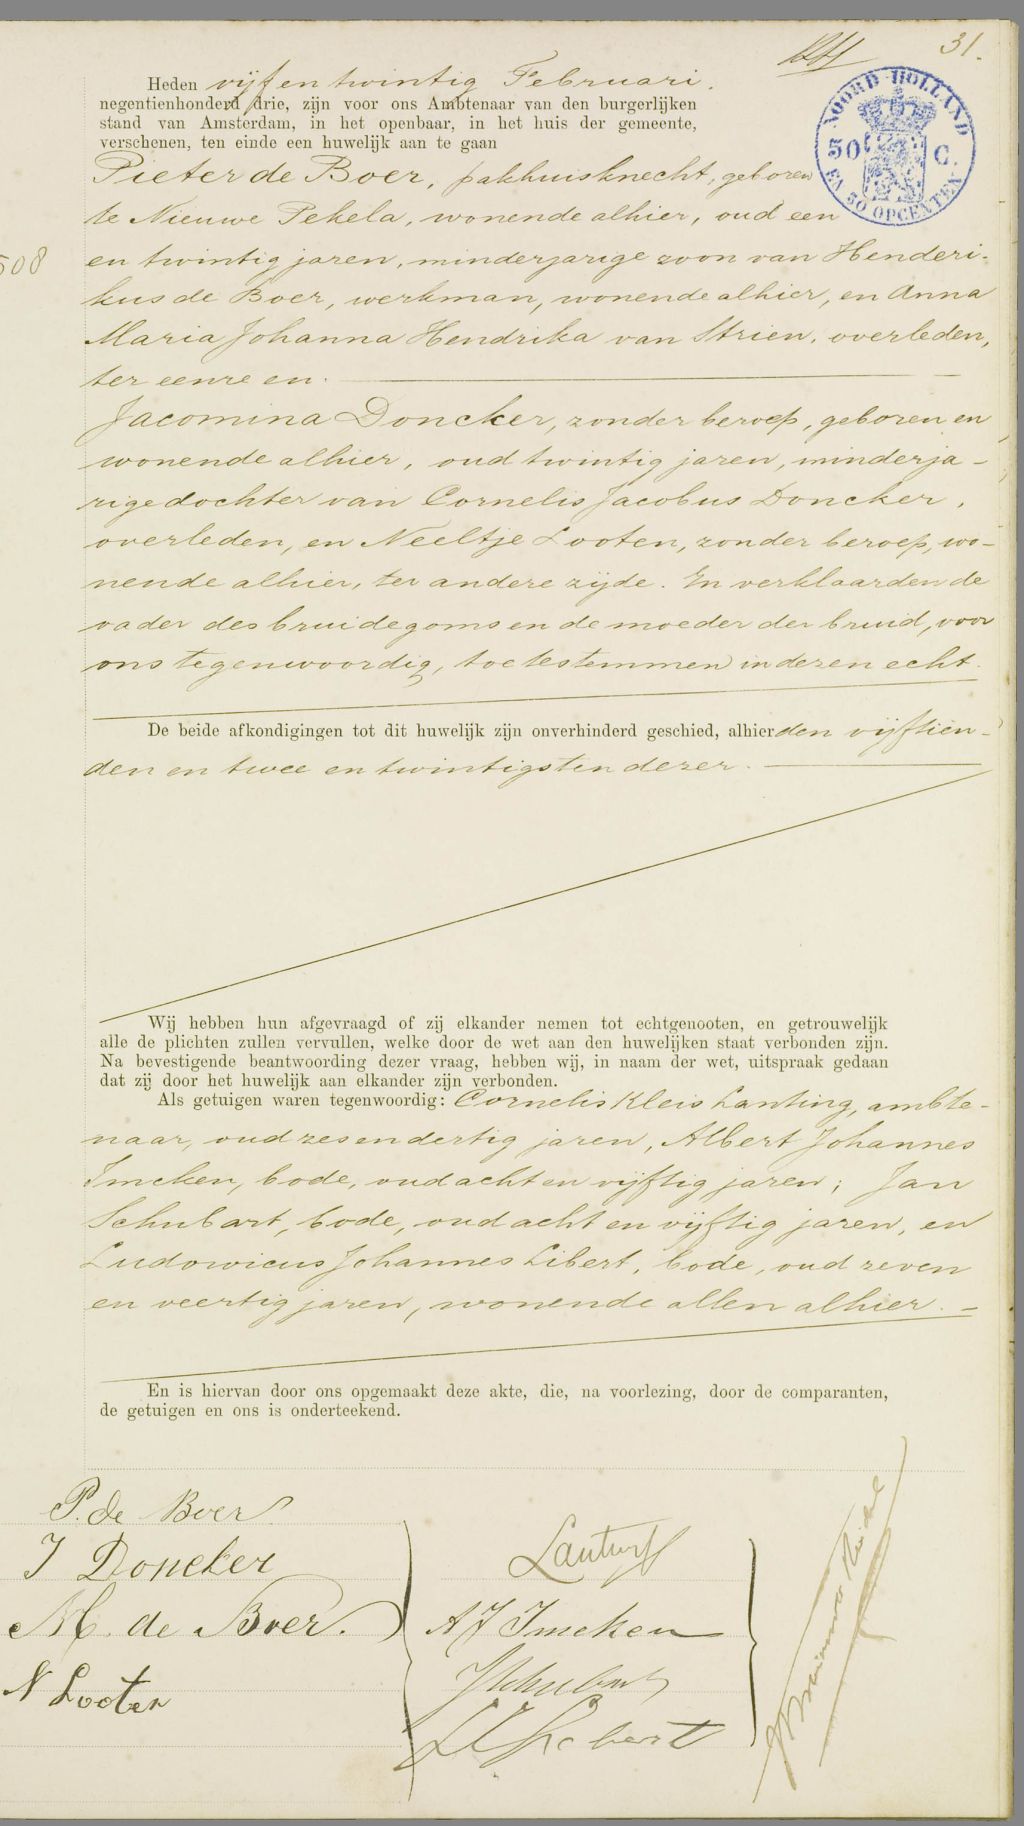 31.
NOORD-HOLLAND
50 C.
EN 50 OPCENTEN
Heden vijf en twintig Februari.
negentienhonderd drie, zijn voor ons Ambtenaar van den burgerlijken
stand van Amsterdam, in het openbaar, in het huis der gemeente,
verschenen, ten einde een huwelijk aan te gaan
Pieter de Boer, pakhuisknecht, geboren
te Nieuwe Pekela, wonende alhier, oud een
508
en twintig jaren, minderjarige zoon van Henderi-
kus de Boer, werkman, wonende alhier, en Anna
Maria Johanna Hendrika van Strien, overleden,
ter eenre en.
Jacomina Doncker, zonder beroep, geboren en
wonende alhier, oud twintig jaren, minderja-
rige dochter van Cornelis Jacobus Doncker,
overleden, en Neeltje Looten, zonder beroep, wo-
nende alhier, ter andere zijde. En verklaarden de
vader des bruidegoms en de moeder der bruid, voor
ons tegenwoordig, toetestemmen in dezen echt.
De beide afkondigingen tot dit huwelijk zijn onverhinderd geschied, alhier den vijftien-
den en twee en twintigsten dezer.
Wij hebben hun afgevraagd of zij elkander nemen tot echtgenooten, en getrouwelijk
alle de plichten zullen vervullen, welke door de wet aan den huwelijken staat verbonden zijn.
Na bevestigende beantwoording dezer vraag, hebben wij, in naam der wet, uitspraak gedaan
dat zij door het huwelijk aan elkander zijn verbonden.
Als getuigen waren tegenwoordig: Cornelis Kleis Lanting, ambte-
naar, oud zes en dertig jaren, Albert Johannes
Imeken, bode, oud acht en vijftig jaren; Jan
Schubart, bode, oud acht en vijftig jaren, en
Ludovicus Johannes Libert, bode, oud zeven
en veertig jaren, wonende allen alhier.
En is hiervan door ons opgemaakt deze akte, die, na voorlezing, door de comparanten,
de getuigen en ons is onderteekend.
P. de Boer
J Doncker
H. de Boer.
N Looten
Lanting
A J Imeken
J Schubart
L J Libert